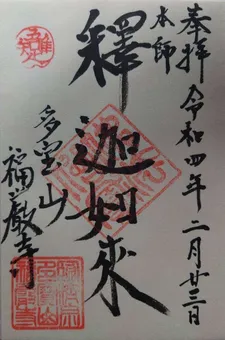 奉拝
令和四年二月廿三日
本師
釋迦如來
多宝山
福嚴寺